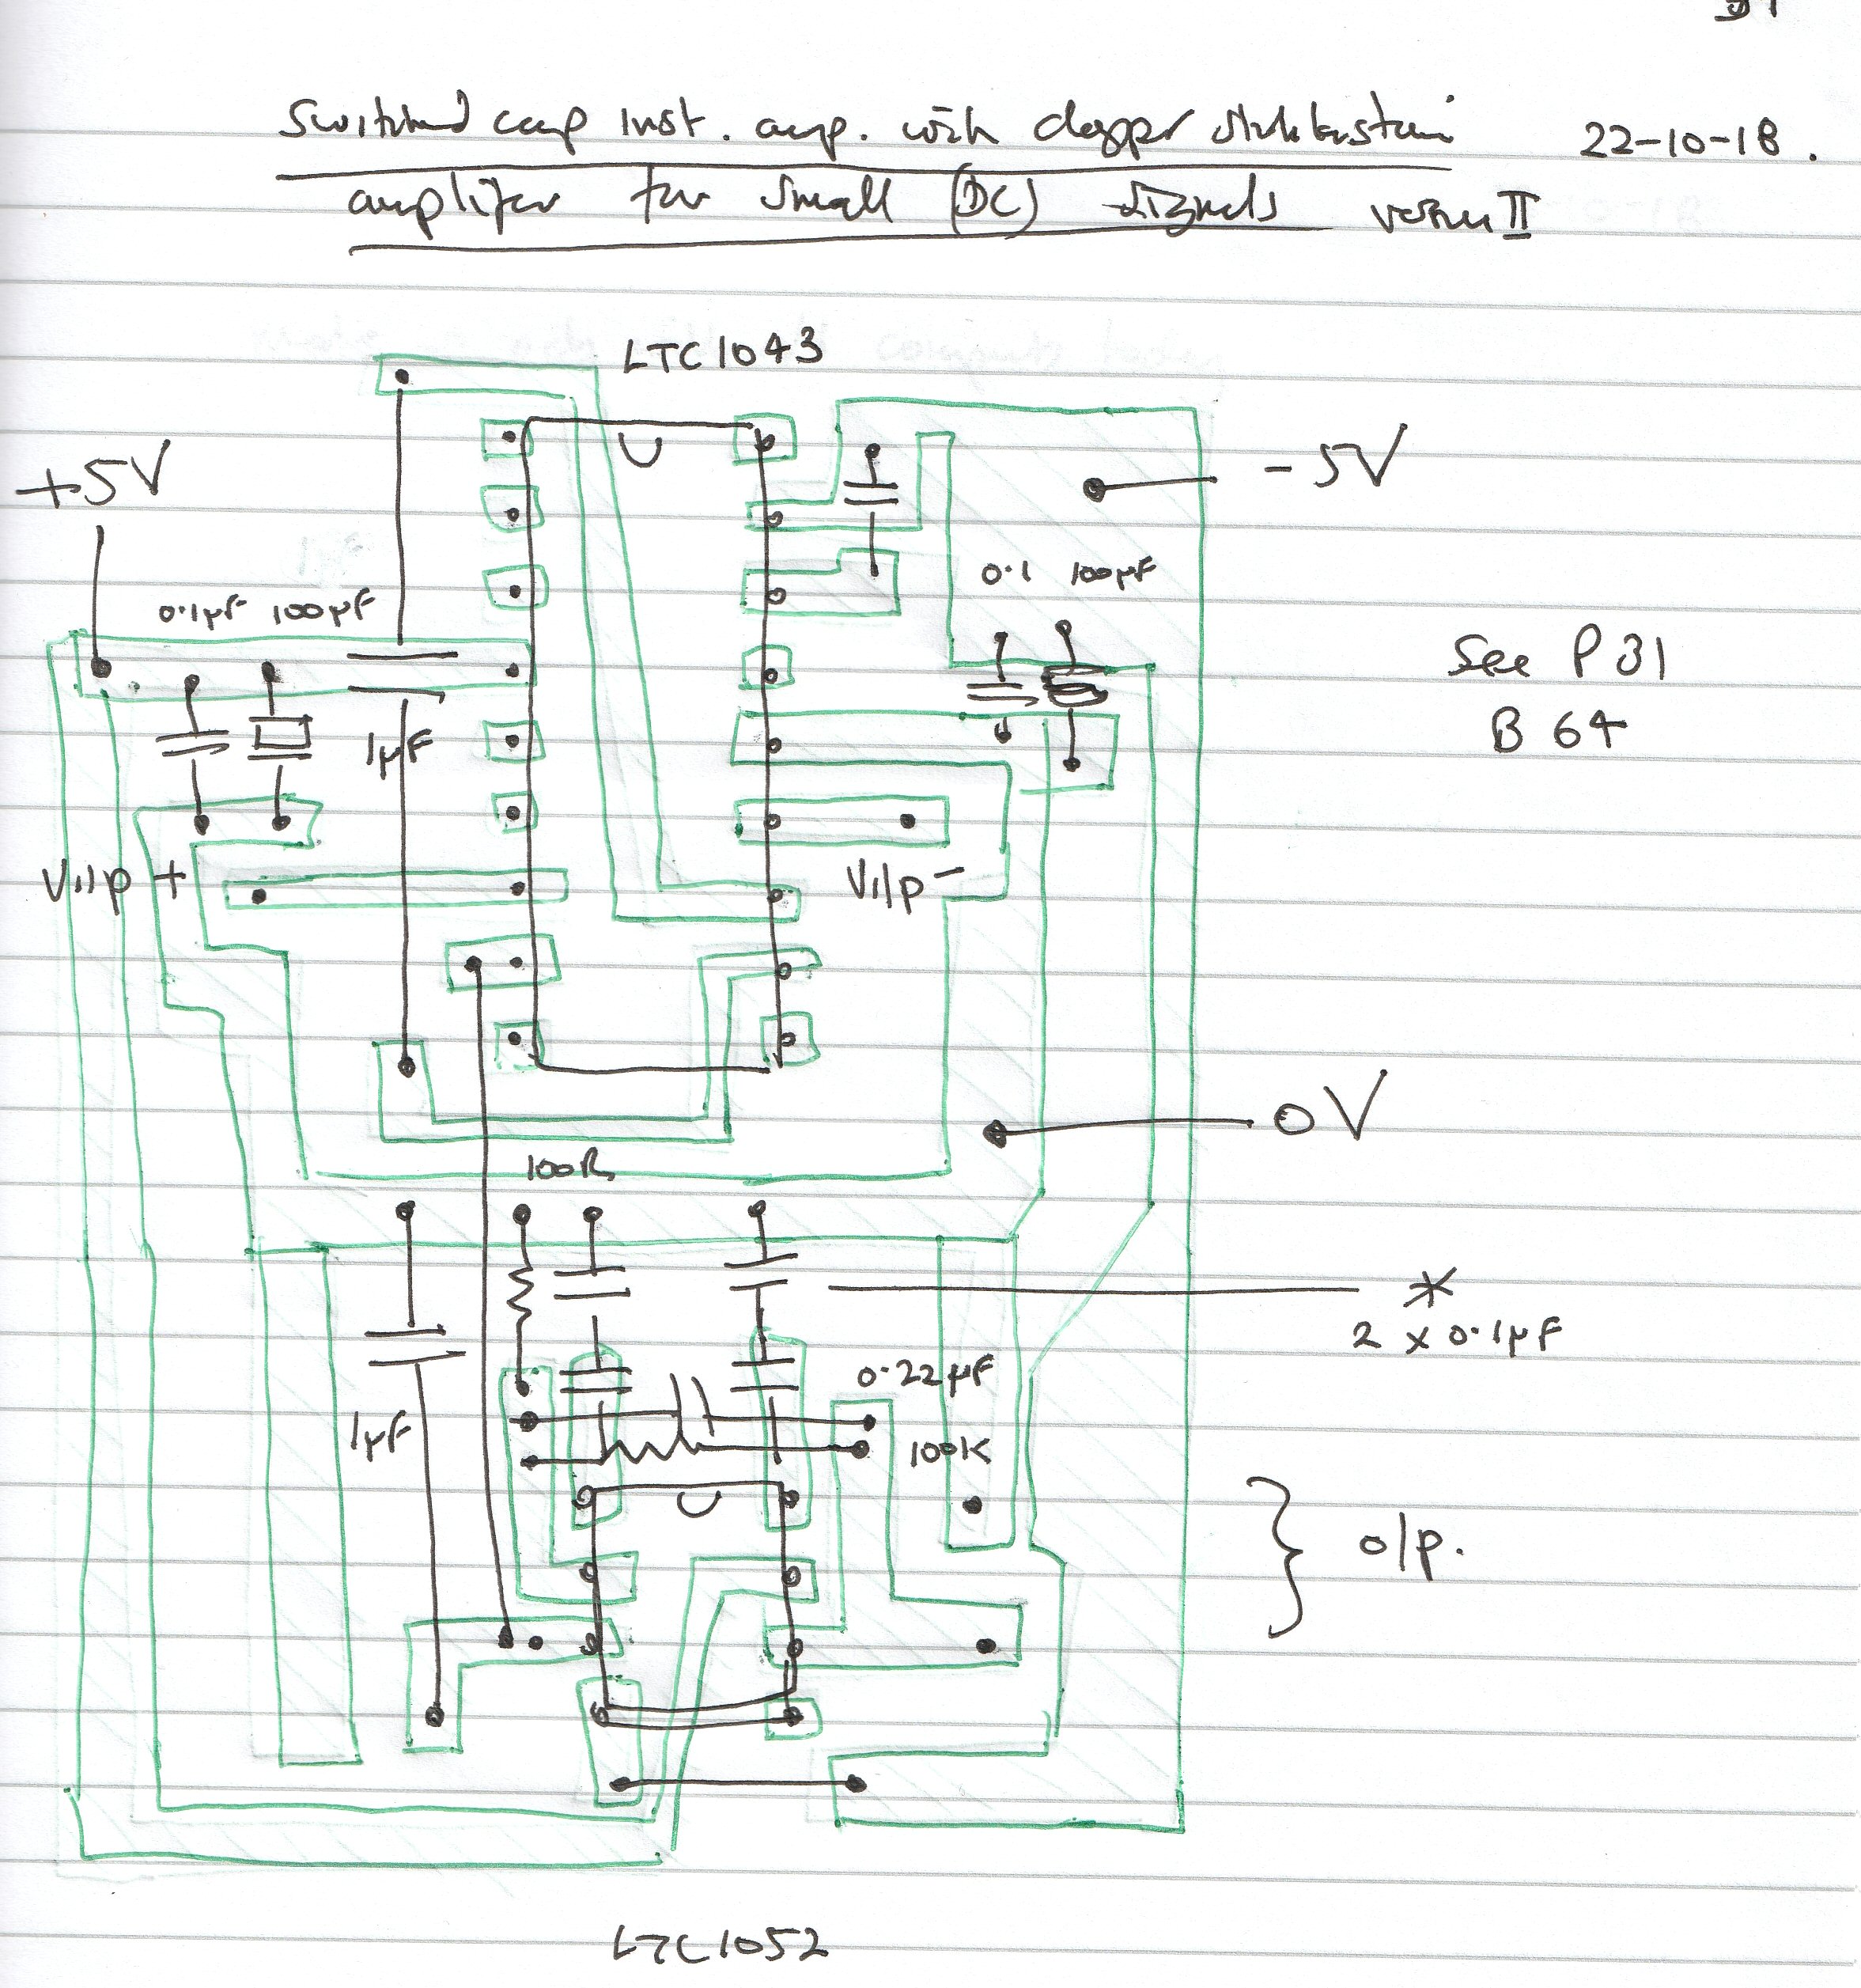 Switched cap inst. amp. with chopper stabilisation 22-10-18.
amplifier for small (DC) signals version II
LTC1043
+5V
-5V
0.1µF 100µF
0.1 100µF
See P 31
B 64
1µF
Vi/p +
Vi/p -
0V
100R
*
2 x 0.1µF
0.22µF
1µF
100K
o/p.
LTC1052